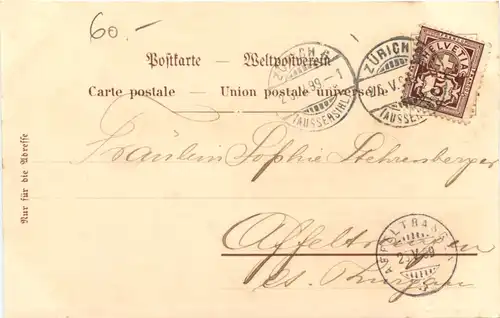 60.-
Postkarte — Weltpostverein
Carte postale — Union postale universelle
Nur für die Adresse
HELVETIA
5
ZÜRICH 6
2.V.99.-1
(AUSSERSIHL)
ZÜRICH
(AUSSERSIHL)
Fräulein Sophie Stehrenberger
Affeltrangen
AFFELTRANGEN
2.V.99
Ct. Thurgau